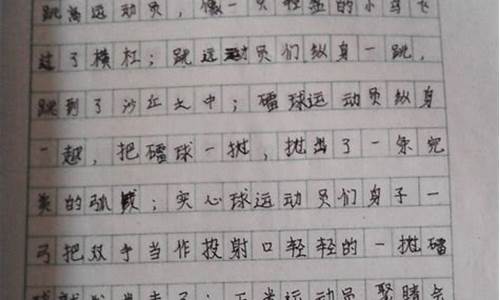 跳高运动员，像一只轻盈的小鸟飞
过了横杠；跳远运动员们纵身一跳，
跳到了沙丘之中；礌球运动员纵身
一越，把礌球一抛，抛出了一条完
美的弧线；实心球运动员们身子一
弓把双手当作投射口轻轻的一抛礌